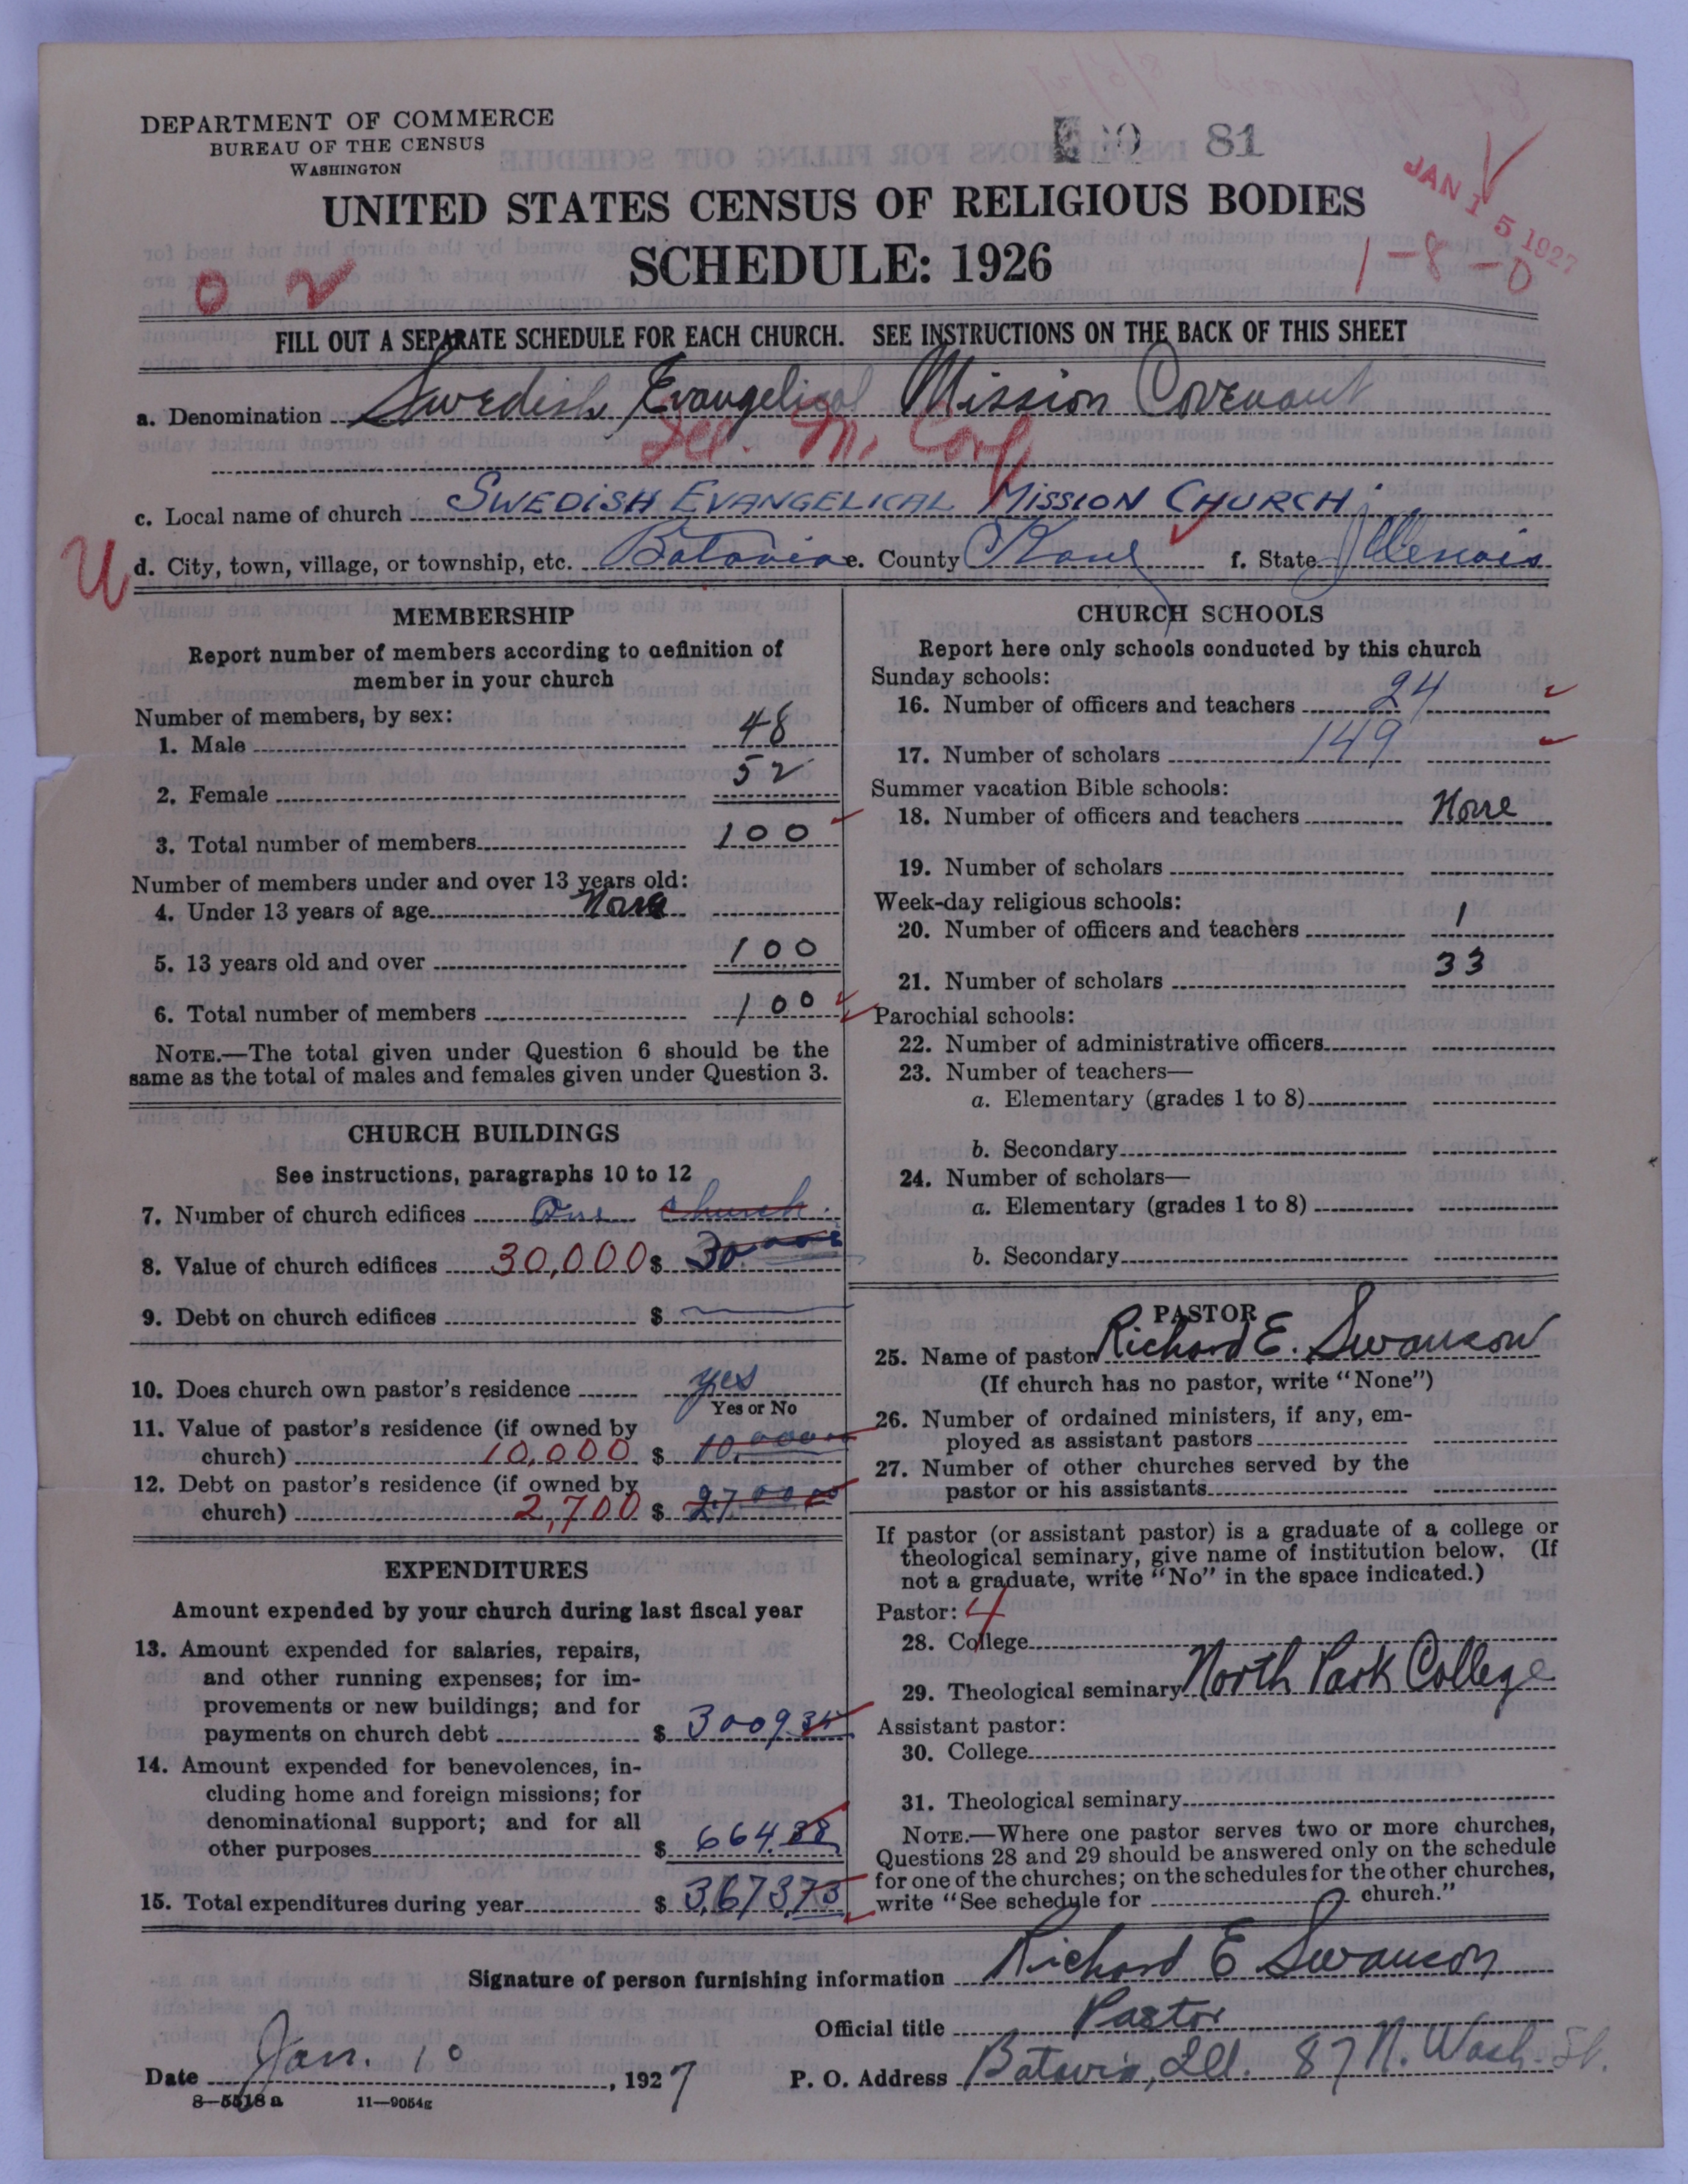 DEPARTMENT OF COMMERCE
BUREAU OF THE CENSUS
WASHINGTON
81
JAN 15 1927
UNITED STATES CENSUS OF RELIGIOUS BODIES
SCHEDULE: 1926
1-8-0
0 2
FILL OUT A SEPARATE SCHEDULE FOR EACH CHURCH. SEE INSTRUCTIONS ON THE BACK OF THIS SHEET
a. Denomination Swedish Evangelical Mission Covenant
c. Local name of church SWEDISH EVANGELICAL MISSION CHURCH
U
d. City, town, village, or township, etc. Batavia e. County Kane f. State Illenois
MEMBERSHIP
Report number of members according to definition of
member in your church
Number of members, by sex:
1. Male 48
2. Female 52
3. Total number of members 100
Number of members under and over 13 years old:
4. Under 13 years of age None
5. 13 years old and over 100
6. Total number of members 100
NOTE.—The total given under Question 6 should be the
same as the total of males and females given under Question 3.
CHURCH BUILDINGS
See instructions, paragraphs 10 to 12
7. Number of church edifices One church.
8. Value of church edifices 30,000 $ 30.000
9. Debt on church edifices $
10. Does church own pastor's residence yes
Yes or No
11. Value of pastor's residence (if owned by
church) 10,000 $ 10.000
12. Debt on pastor's residence (if owned by
church) 2,700 $ 27.00
EXPENDITURES
Amount expended by your church during last fiscal year
13. Amount expended for salaries, repairs,
and other running expenses; for im-
provements or new buildings; and for
payments on church debt $ 3009 35
14. Amount expended for benevolences, in-
cluding home and foreign missions; for
denominational support; and for all
other purposes $ 664.38
15. Total expenditures during year $ 3,673,73
CHURCH SCHOOLS
Report here only schools conducted by this church
Sunday schools:
16. Number of officers and teachers 24
17. Number of scholars 149
Summer vacation Bible schools:
18. Number of officers and teachers None
19. Number of scholars
Week-day religious schools:
20. Number of officers and teachers 1
21. Number of scholars 33
Parochial schools:
22. Number of administrative officers
23. Number of teachers—
a. Elementary (grades 1 to 8)
b. Secondary
24. Number of scholars—
a. Elementary (grades 1 to 8)
b. Secondary
PASTOR
25. Name of pastor Richard E. Swanson
(If church has no pastor, write "None")
26. Number of ordained ministers, if any, em-
ployed as assistant pastors
27. Number of other churches served by the
pastor or his assistants
If pastor (or assistant pastor) is a graduate of a college or
theological seminary, give name of institution below. (If
not a graduate, write "No" in the space indicated.)
Pastor: 4
28. College
29. Theological seminary North Park College
Assistant pastor:
30. College
31. Theological seminary
NOTE.—Where one pastor serves two or more churches,
Questions 28 and 29 should be answered only on the schedule
for one of the churches; on the schedules for the other churches,
write "See schedule for church."
Signature of person furnishing information Richard E Swanson
Official title Pastor
Date Jan. 10, 1927 P. O. Address Batavia, Ill. 87 N. Wash. St.
8—5518 a 11—9054g